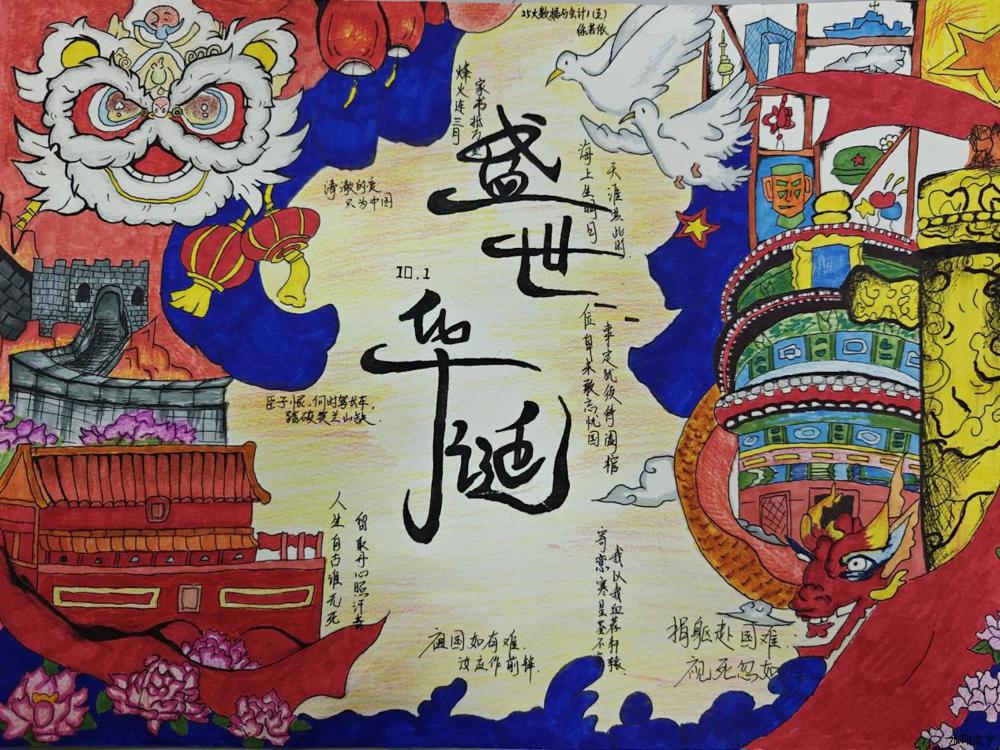 25大数据与会计1(5)
徐若依
烽火连三月
家书抵万
盛世华诞
海上生明月
天涯共此时
清澈的爱
只为中国
10.1
位卑未敢忘忧国
事定犹须待阖棺
臣子恨,何时
踏破贺兰山缺.
人生自古谁无死
留取丹心照汗青
寄意寒星荃不
我以我血荐轩辕.
祖国如有难.
汝应作前锋.
捐躯赴国难.
视死忽如
水印文字